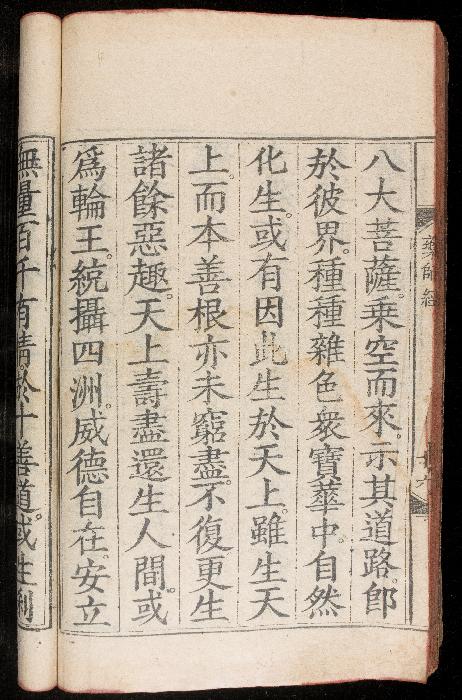 藥師經
八大菩薩。乘空而來。示其道路。卽
於彼界。種種雜色衆寶華中。自然
化生。或有因此生於天上。雖生天
上。而本善根亦未窮盡。不復更生
諸餘惡趣。天上壽盡。還生人間。或
爲輪王。統攝四洲。威德自在。安立
無量百千有情。於十善道。或生刹